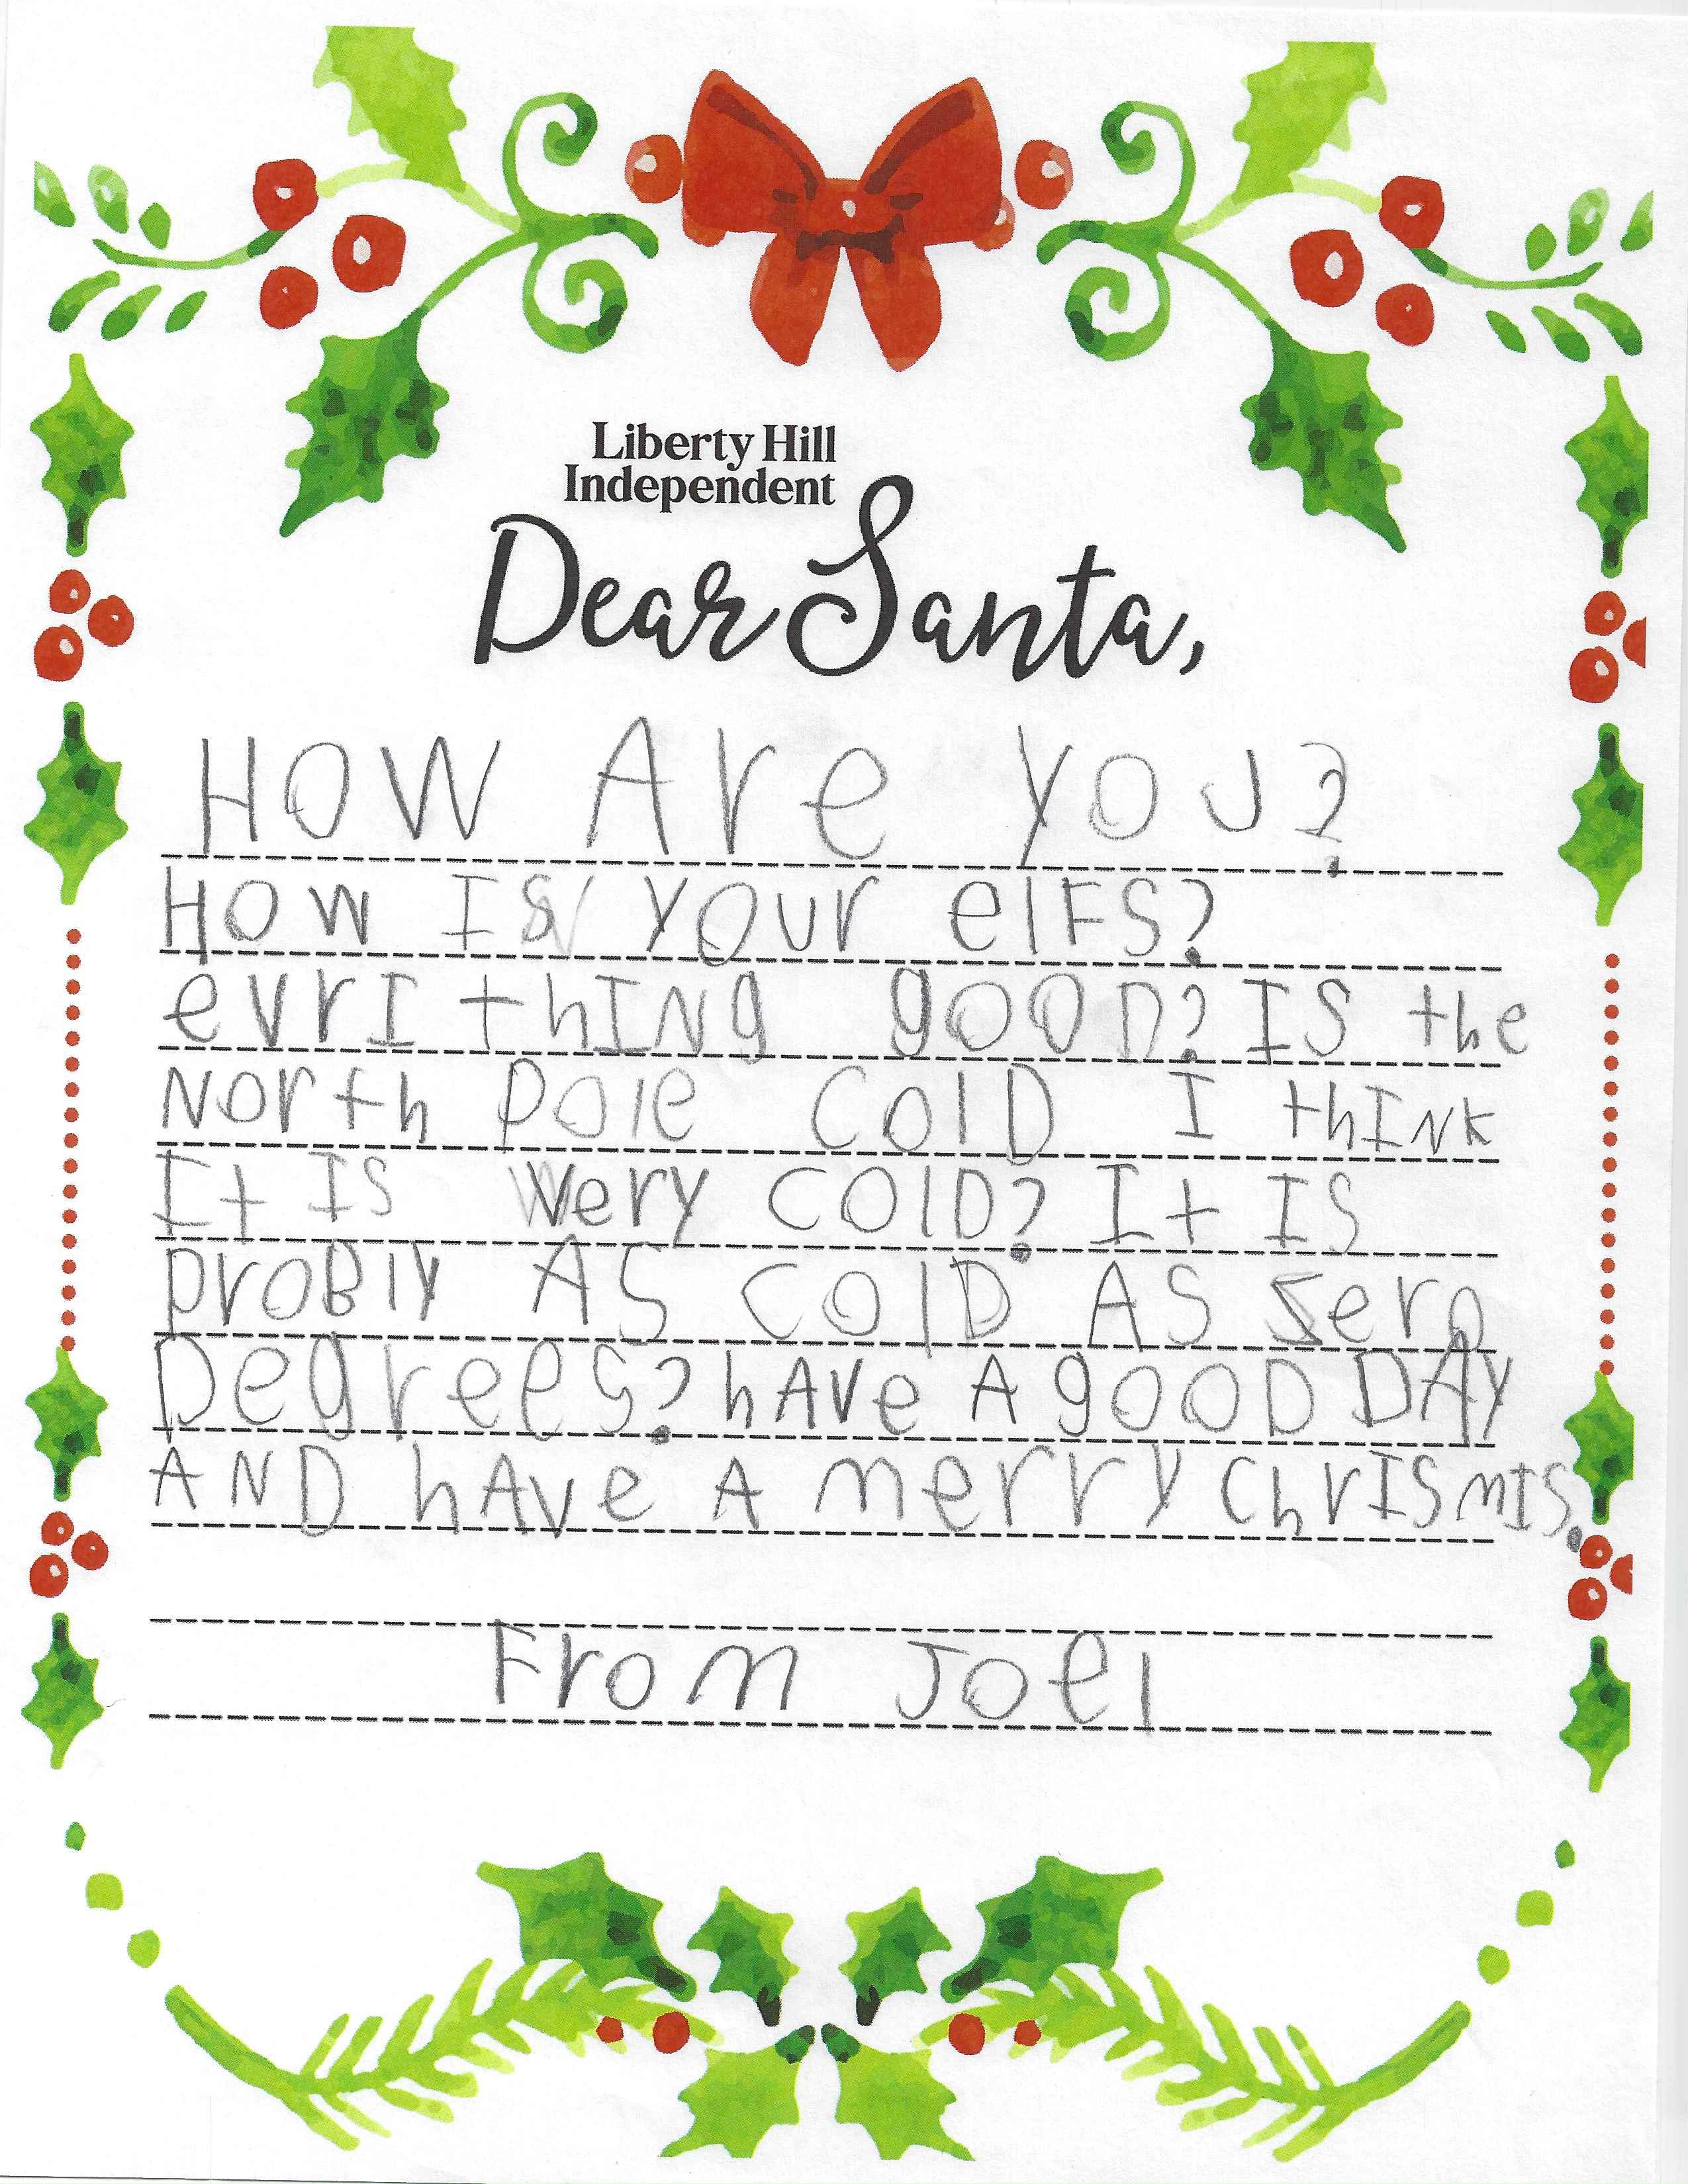 Liberty Hill
Independent
Dear Santa,
HOW Are YOU?
HOW IS YOUr elFS?
evrI thING gOOD? IS the
NOrth pole COlD I thINK
It IS Very COlD? It IS
prOBlY AS COlD AS Zero
Degrees? hAve A gOOD DAY
AND hAve A merrY ChrISmIS.
From Joel